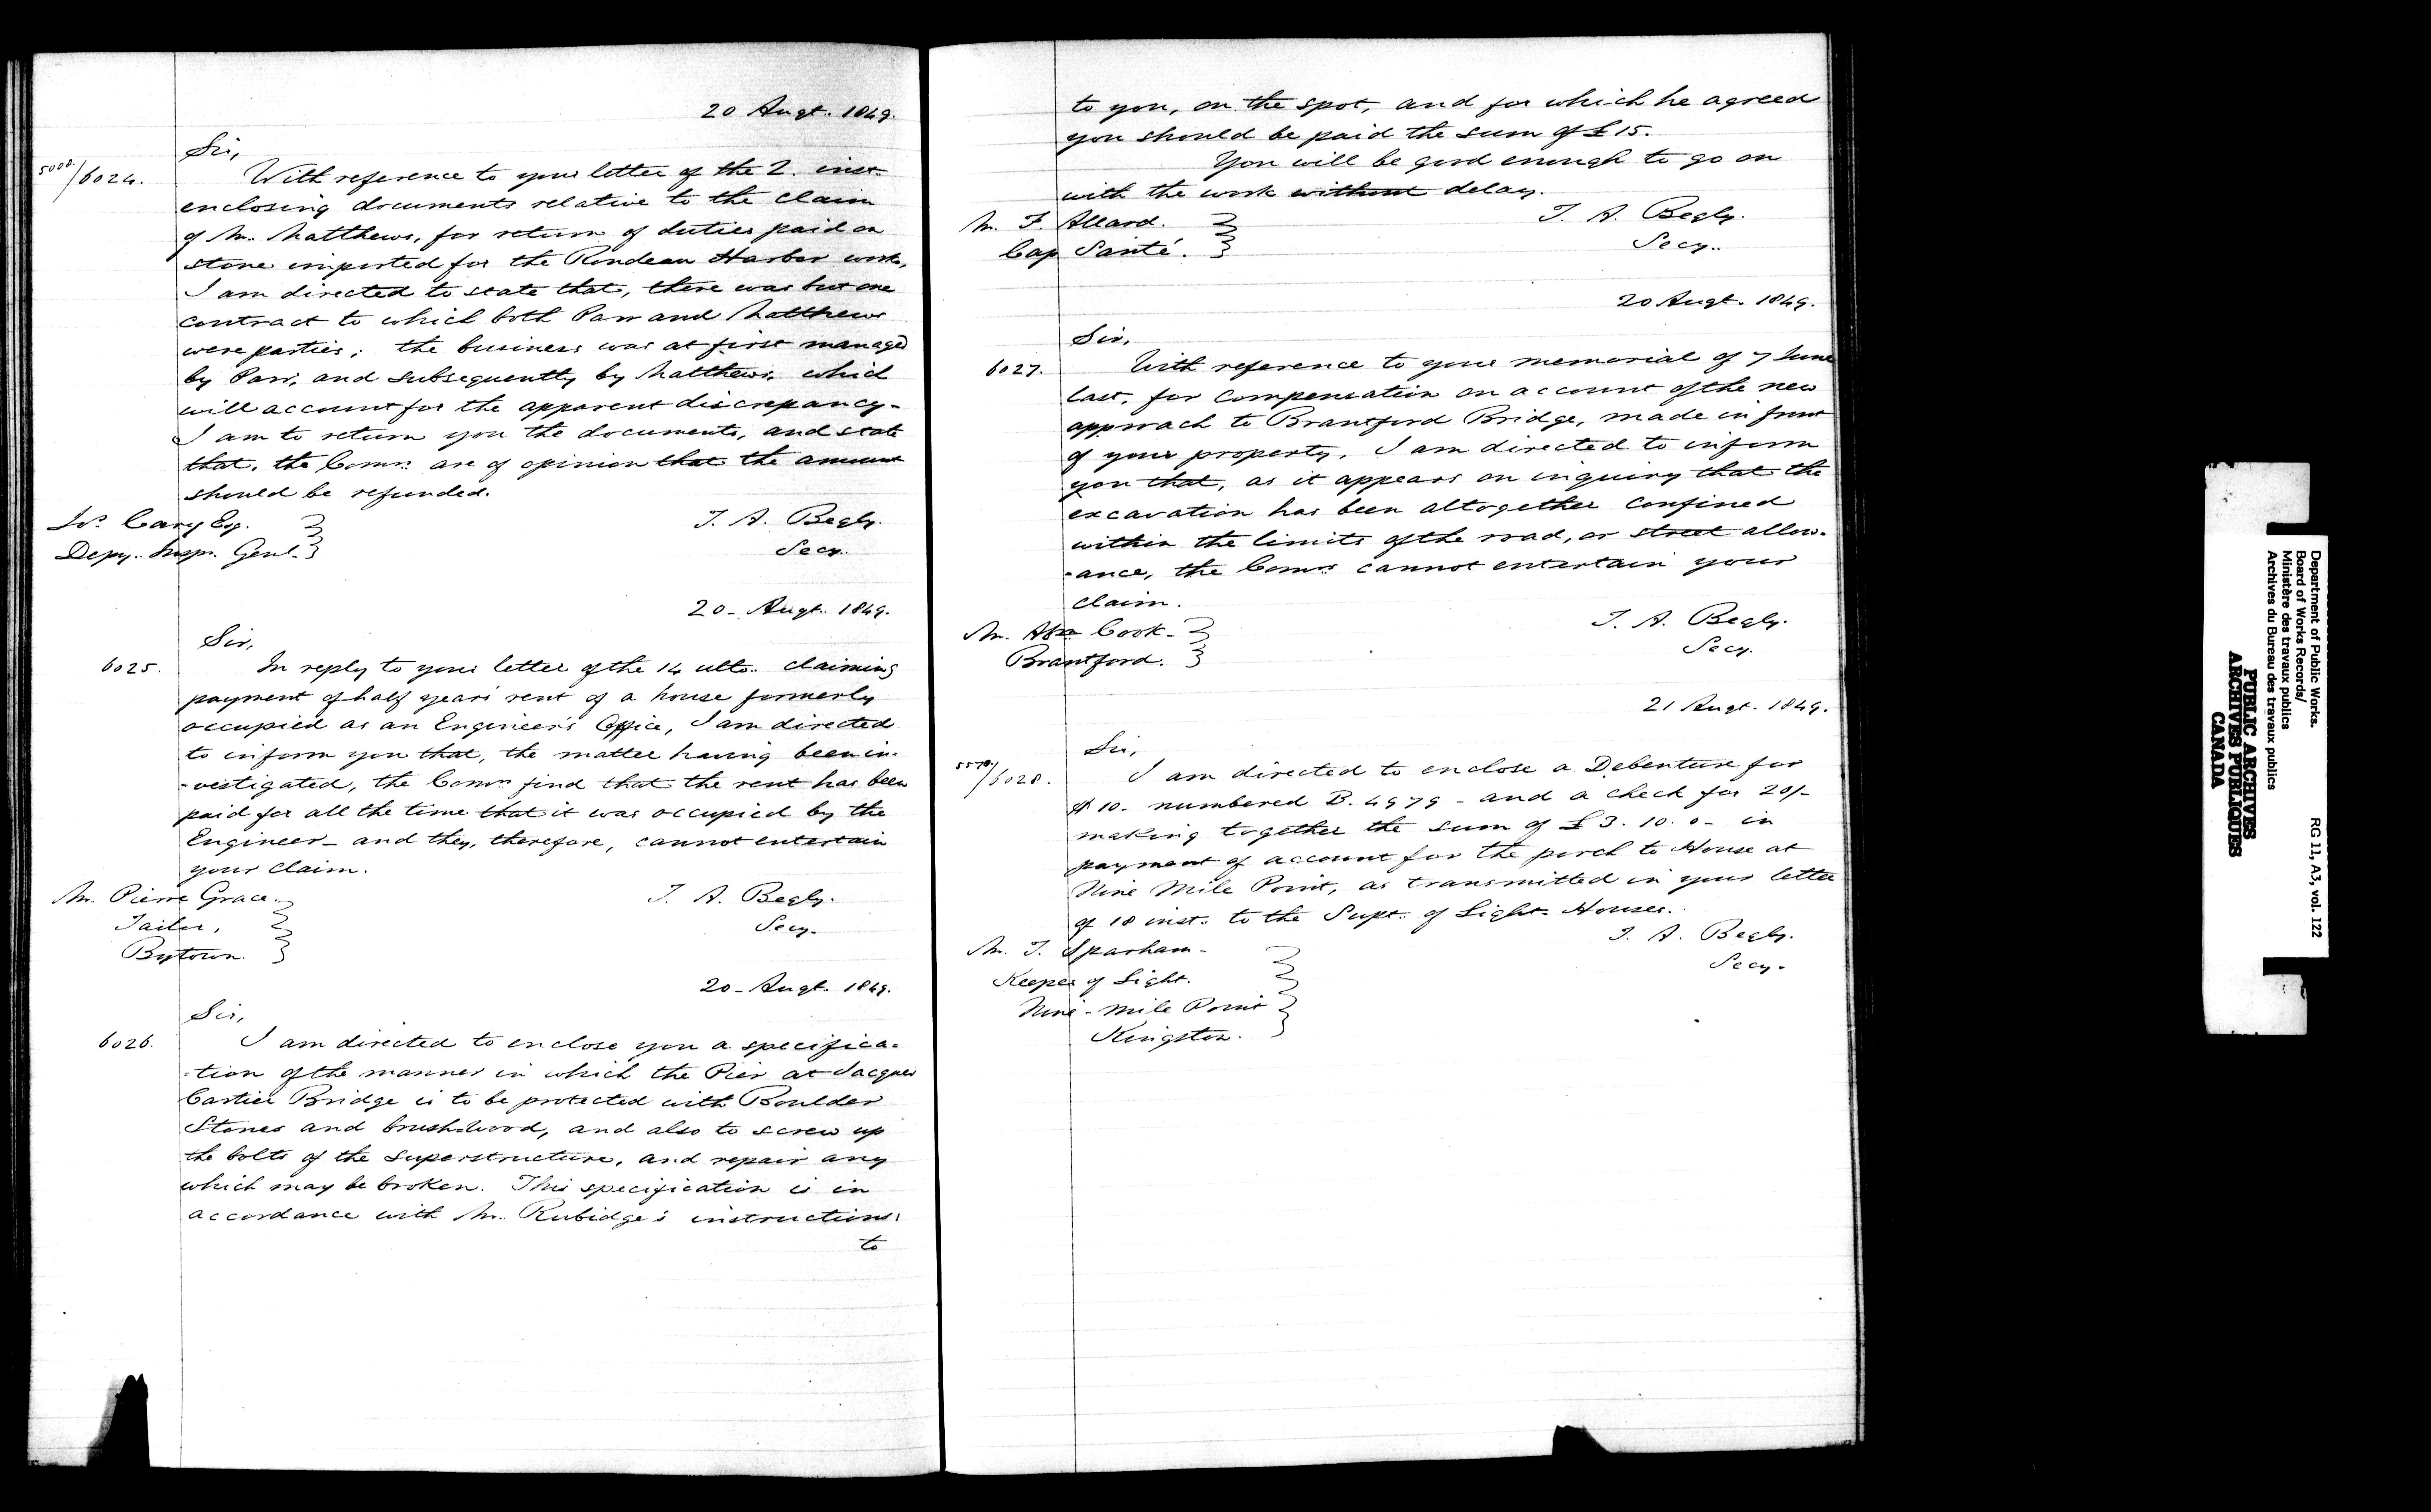 20 Augt. 1849.
Sir,
5000/6024.
With reference to your letter of the 2. inst.
enclosing documents relative to the claim
of Mr. Matthews, for return of duties paid on
stone imported for the Rondeau Harbor works,
I am directed to state that, there was but one
contract to which both Parr and Matthews
were parties; the business was at first managed
by Parr, and subsequently by Matthews, which
will account for the apparent discrepancy.
I am to return you the documents, and state
that, the Comrs. are of opinion that the amount
should be refunded.
Js. Cary Esq.
Depy. Inspr. Genl.
T. A. Begly.
Secy.
20 - Augt. 1849.
Sir,
6025.
In reply to your letter of the 14 ulto. claiming
payment of half years' rent of a house formerly
occupied as an Engineer's Office, I am directed
to inform you that, the matter having been in-
-vestigated, the Comrs. find that the rent has been
paid for all the time that it was occupied by the
Engineer - and they, therefore, cannot entertain
your claim.
Mr. Pierre Grace.
Tailor,
Bytown.
T. A. Begly.
Secy.
20 - Augt. 1849.
Sir,
6026.
I am directed to enclose you a specifica-
-tion of the manner in which the Pier at Jacques
Cartier Bridge is to be protected with Boulder
Stones and brushwood, and also to screw up
the bolts of the superstructure, and repair any
which may be broken. This specification is in
accordance with Mr. Rubidge's instructions
to
to you, on the spot, and for which he agreed
you should be paid the sum of £15.
You will be good enough to go on
with the work without delay.
Mr. F. Allard.
Cap Santé.
T. A. Begly.
Secy.
20 Augt. 1849.
Sir,
6027.
With reference to your memorial of 7 June
last, for compensation on account of the new
approach to Brantford Bridge, made in front
of your property, I am directed to inform
you that, as it appears on inquiry that the
excavation has been altogether confined
within the limits of the road, or street allow-
-ance, the Comrs. cannot entertain your
claim.
Mr. Abm. Cook.
Brantford.
T. A. Begly.
Secy.
21 Augt. 1849.
Sir,
/6028.
I am directed to enclose a Debenture for
$10 - numbered B. 4979 - and a check for 20/-
making together the sum of £3. 10. 0 - in
payment of account for the porch to House at
Nine Mile Point, as transmitted in your letter
of 18 inst. to the Supt. of Light Houses.
Mr. T. Sparham -
Keeper of Light.
Nine - Mile Point
Kingston.
T. A. Begly.
Secy.
Department of Public Works.
Board of Works Records/
Ministère des travaux publics
Archives du Bureau des travaux publics
RG 11, A3, vol. 122
PUBLIC ARCHIVES
ARCHIVES PUBLIQUES
CANADA